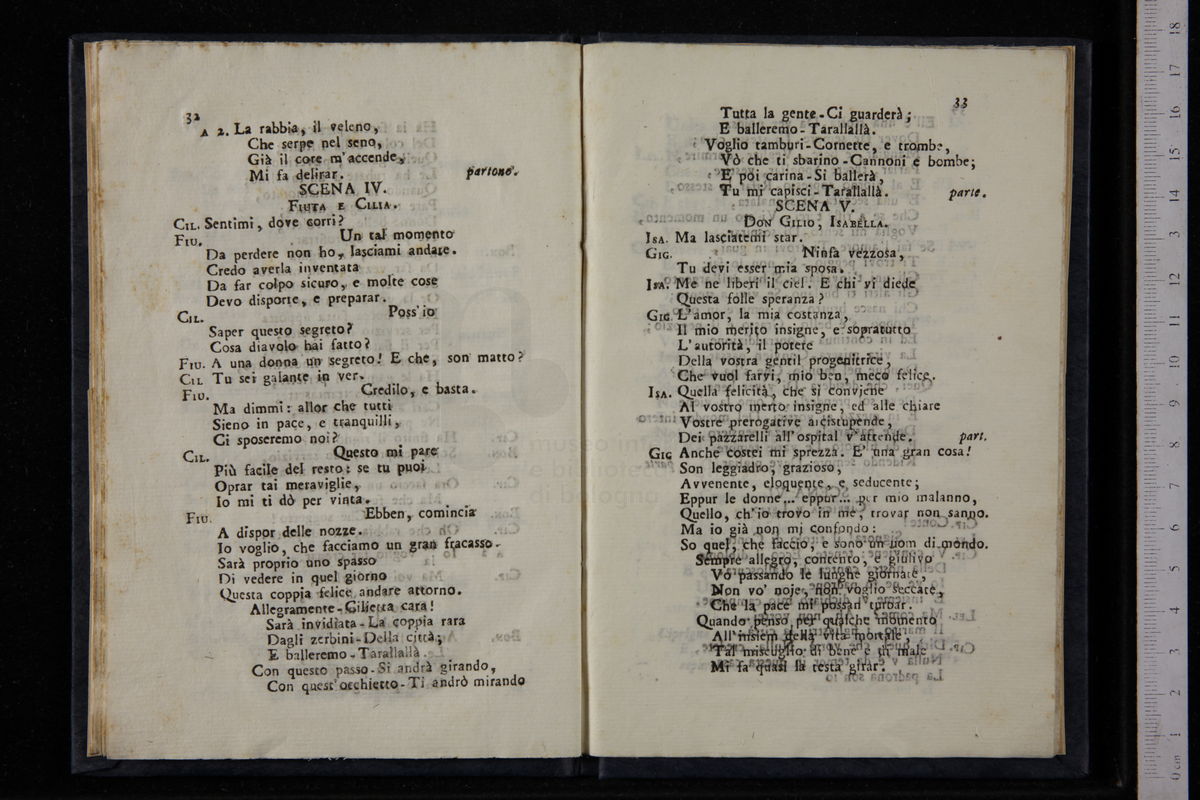 32
A 2. La rabbia, il veleno,
Che serpe nel seno,
Già il core m'accende,
Mi fa delirar. partono.
SCENA IV.
FIUTA E CILIA.
CIL. Sentimi, dove corri?
FIU. Un tal momento
Da perdere non ho, lasciami andare.
Credo averla inventata
Da far colpo sicuro, e molte cose
Devo disporre, e preparar.
CIL. Poss'io
Saper questo segreto?
Cosa diavolo hai fatto?
FIU. A una donna un segreto! E che, son matto?
CIL Tu sei galante in ver.
FIU. Credilo, e basta.
Ma dimmi: allor che tutti
Sieno in pace, e tranquilli,
Ci sposeremo noi?
CIL. Questo mi pare
Più facile del resto: se tu puoi
Oprar tai meraviglie,
Io mi ti dò per vinta.
FIU. Ebben, comincia
A dispor delle nozze.
Io voglio, che facciamo un gran fracasso.
Sarà proprio uno spasso
Di vedere in quel giorno
Questa coppia felice andare attorno.
Allegramente - Cilietta cara!
Sarà invidiata - La coppia rara
Dagli zerbini - Della città;
E balleremo - Tarallallà.
Con questo passo - Si andrà girando,
Con quest'occhietto - Ti andrò mirando
33
Tutta la gente - Ci guarderà;
E balleremo - Tarallallà.
Voglio tamburi - Cornette, e trombe,
Vò che ti sbarino - Cannoni e bombe;
E poi carina - Si ballerà,
Tu mi capisci - Tarallallà. parte.
SCENA V.
DON GILIO, ISABELLA.
ISA. Ma lasciatemi star.
GIG. Ninfa vezzosa,
Tu devi esser mia sposa.
ISA. Me ne liberi il ciel. E chi vi diede
Questa folle speranza?
GIG. L'amor, la mia costanza,
Il mio merito insigne, e sopratutto
L'autorità, il potere
Della vostra gentil progenitrice,
Che vuol farvi, mio ben, meco felice.
ISA. Quella felicità, che si conviene
Al vostro merto insigne, ed alle chiare
Vostre prerogative arcistupende,
Dei pazzarelli all'ospital v'attende. part.
GIG Anche costei mi sprezza. E' una gran cosa!
Son leggiadro, grazioso,
Avvenente, eloquente, e seducente;
Eppur le donne... eppur... per mio malanno,
Quello, ch'io trovo in me, trovar non sanno.
Ma io già non mi confondo:
So quel, che faccio, e sono un uom di mondo.
Sempre allegro, contento, e giulivo
Vò passando le lunghe giornate,
Non vo' noje, non voglio seccate,
Che la pace mi possan turbar.
Quando penso per qualche momento
All'insiem della vita mortale,
Tal miscuglio di bene e di male
Mi fa quasi la testa girar.